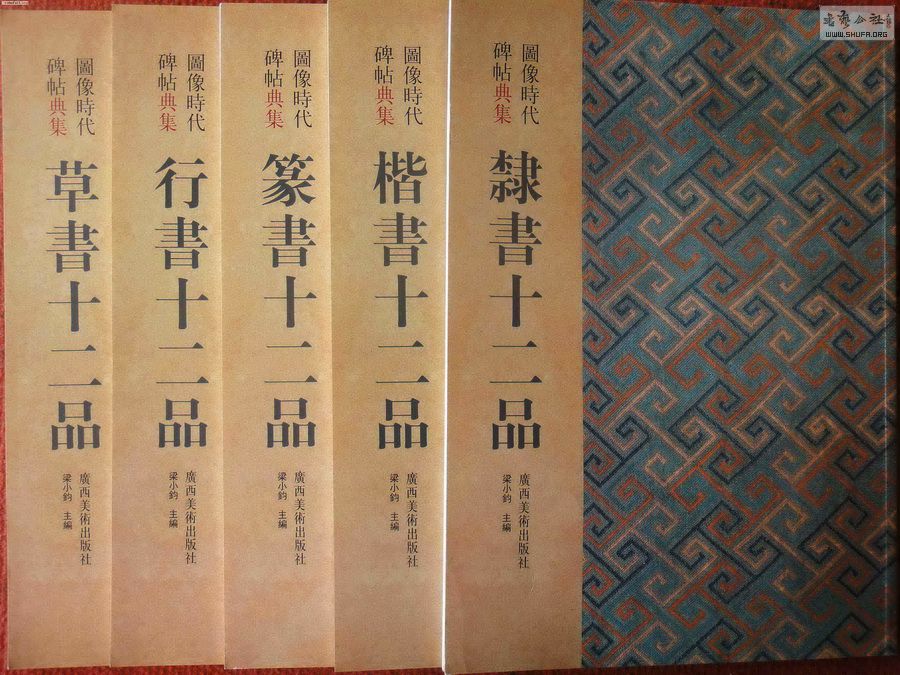 圖像時代
碑帖典集
草書十二品
廣西美術出版社
梁小鈞 主編
圖像時代
碑帖典集
行書十二品
廣西美術出版社
梁小鈞 主編
圖像時代
碑帖典集
篆書十二品
廣西美術出版社
梁小鈞 主編
圖像時代
碑帖典集
楷書十二品
廣西美術出版社
梁小鈞 主編
圖像時代
碑帖典集
隸書十二品
廣西美術出版社
梁小鈞 主編
WWW.SHUFA.ORG